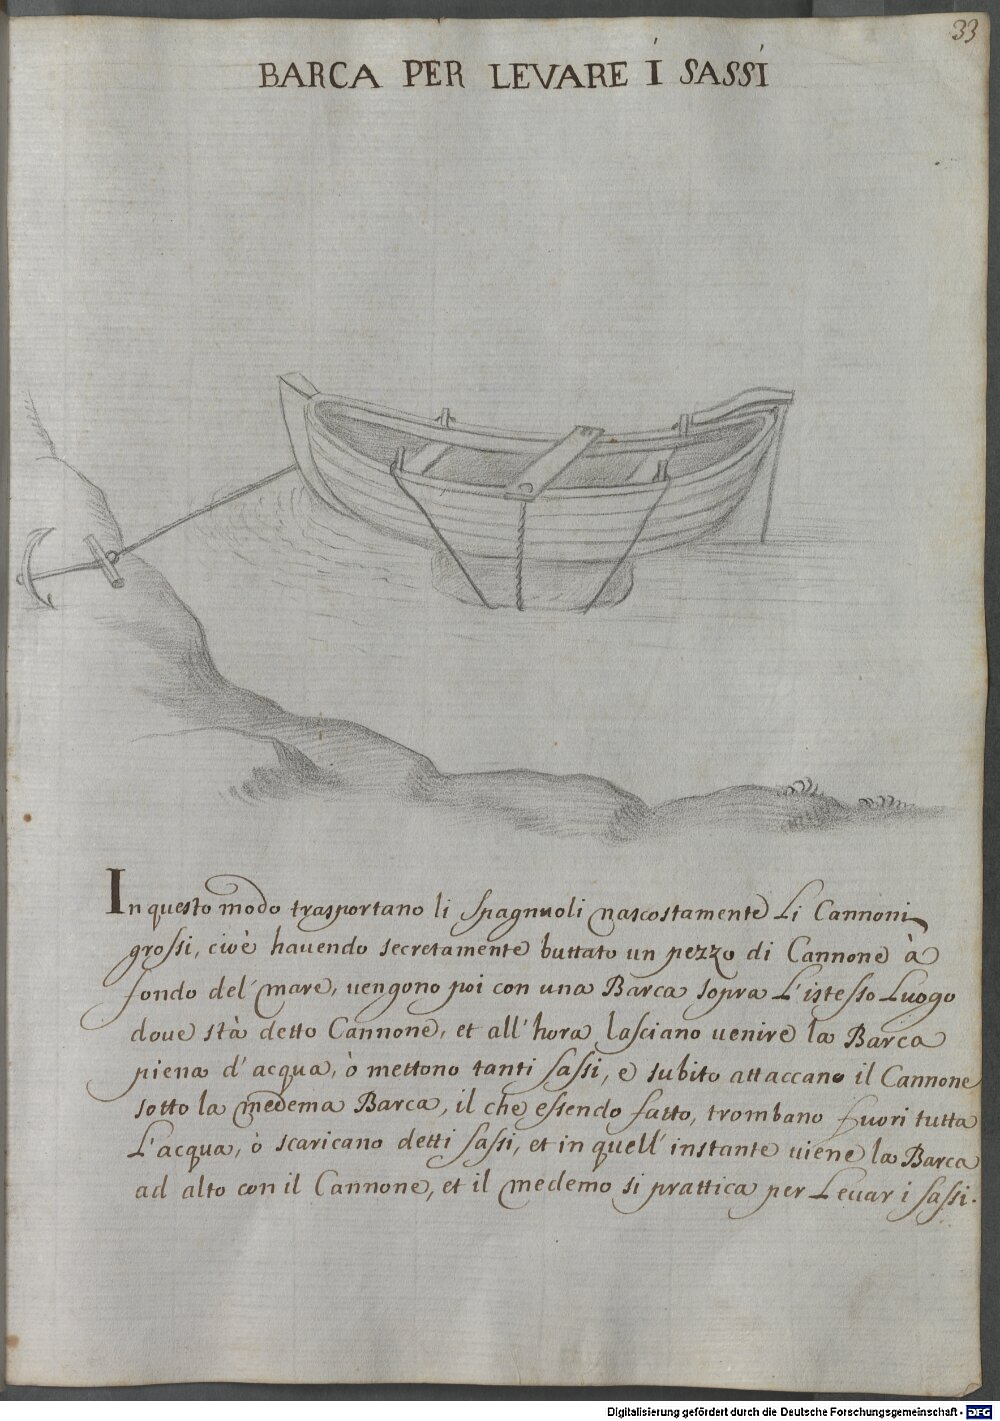 33
BARCA PER LEVARE I SASSI
In questo modo trasportano li Spagnuoli nascostamente Li Cannoni
grossi, cioè hauendo secretamente buttato un pezzo di Cannone à
fondo del' mare, uengono poi con una Barca sopra L'istesso Luogo
doue stà detto Cannone, et all'hora lasciano uenire la Barca
piena d'acqua, ò mettono tanti sassi, e subito attaccano il Cannone
sotto la medema Barca, il che essendo fatto, trombano fuori tutta
L'acqua, ò scaricano detti sassi, et in quell' instante uiene la Barca
ad alto con il Cannone, et il medemo si prattica per Leuar i sassi.
Digitalisierung gefördert durch die Deutsche Forschungsgemeinschaft - DFG